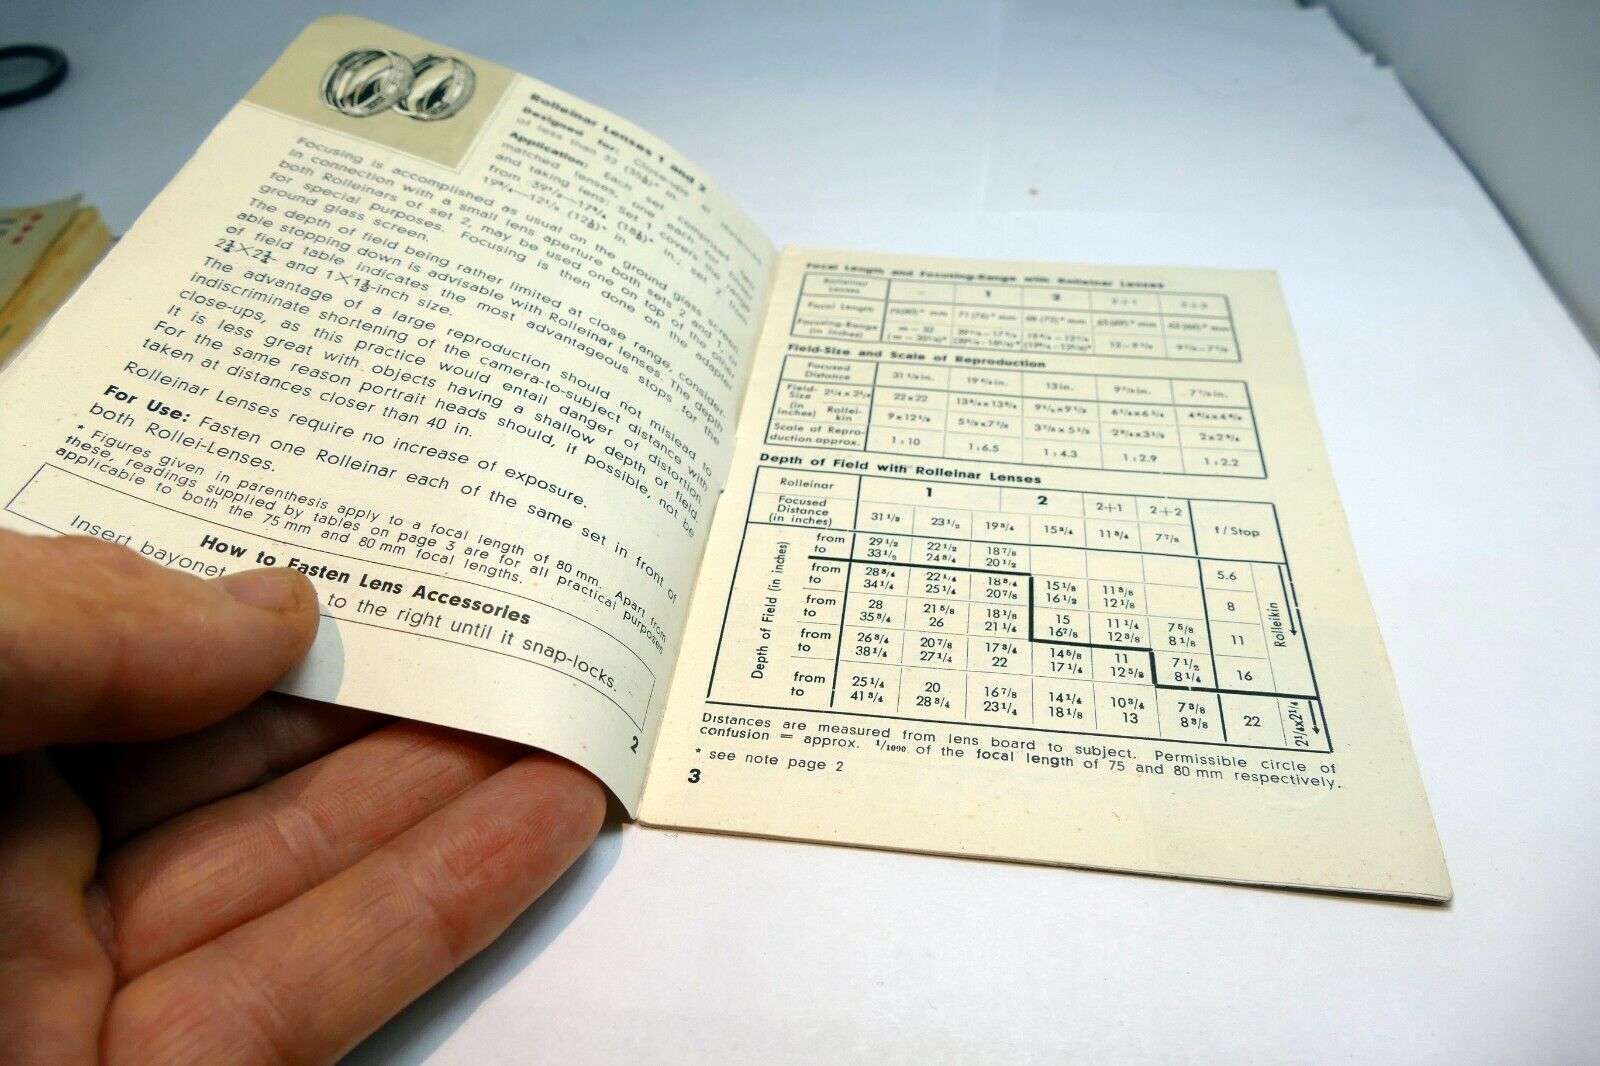 Rolleinar Lenses 1 and 2
Designed for: Close-ups at distances
of less than 32 (35⅜)* in.
Application: Each set comprises two
matched lenses, one each for finder
and taking lens: Set 1 covers the range
from 39½—17¾ in.; set 2 from
19¾—12½ in.
Focusing is accomplished as usual on the ground glass screen.
In connection with a small lens aperture both sets 2 and 1, or
both Rolleinars of set 2, may be used one on top of the other
for special purposes. Focusing is then done on the adapter
ground glass screen.
The depth of field being rather limited at close range, consider-
able stopping down is advisable with Rolleinar lenses. The depth
of field table indicates the most advantageous stops for the
2¼×2¼- and 1×1½-inch size.
The advantage of a large reproduction should not mislead to
indiscriminate shortening of the camera-to-subject distance with
close-ups, as this practice would entail danger of distortion.
It is less great with objects having a shallow depth of field.
For the same reason portrait heads should, if possible, not be
taken at distances closer than 40 in.
Rolleinar Lenses require no increase of exposure.
For Use: Fasten one Rolleinar each of the same set in front of
both Rollei-Lenses.
* Figures given in parenthesis apply to a focal length of 80 mm. Apart from
these, readings supplied by tables on page 3 are for all practical purposes
applicable to both the 75 mm and 80 mm focal lengths.
How to Fasten Lens Accessories
Insert bayonet to the right until it snap-locks.
2
Focal Length and Focusing-Range with Rolleinar Lenses
Rolleinar Lenses — 1 2 2+1 2+2
Focal Length 75(80)* mm 71 (76)* mm 68 (72)* mm 65(69)* mm 62 (66)* mm
Focusing-Range
(in inches)
Field-Size and Scale of Reproduction
Focused Distance 31 ½ in. 19 ¾ in. 13 in. 9 ⅞ in. 7 ⅞ in.
Field-Size (in inches) 2¼x2¼ 22x22 13¾x13¾ 9½x9½ 6¼x6¼ 4¾x4¾
Rolleikin 9x12½ 5½x7⅞ 3⅞x5½ 2¾x3½ 2x2¾
Scale of Reproduction approx. 1:10 1:6.5 1:4.3 1:2.9 1:2.2
Depth of Field with Rolleinar Lenses
Rolleinar 1 2 2+1 2+2 f/Stop
Focused Distance (in inches) 31 ½ 23½ 19 ¾ 15¾ 11 ¾ 7⅞
Depth of Field (in inches)
from 29½ 22½ 18⅞ 5.6
to 33½ 24¾ 20½
from 28¾ 22¼ 18¾ 15⅛ 11⅝ 8
to 34¼ 25¼ 20⅞ 16½ 12⅛
from 28 21⅝ 18⅛ 15 11¼ 7⅝ 11
to 35¾ 26 21¼ 16⅞ 12⅜ 8⅛
from 26¾ 20⅞ 17¾ 14⅝ 11 7½ 16
to 38¼ 27¼ 22 17¼ 12⅝ 8¼
from 25¼ 20 16⅞ 14¼ 10¾ 7⅜ 22
to 41¾ 28¾ 23¼ 18⅛ 13 8⅜
Rolleikin
2¼x2¼
Distances are measured from lens board to subject. Permissible circle of
confusion = approx. 1/1000 of the focal length of 75 and 80 mm respectively.
* see note page 2
3